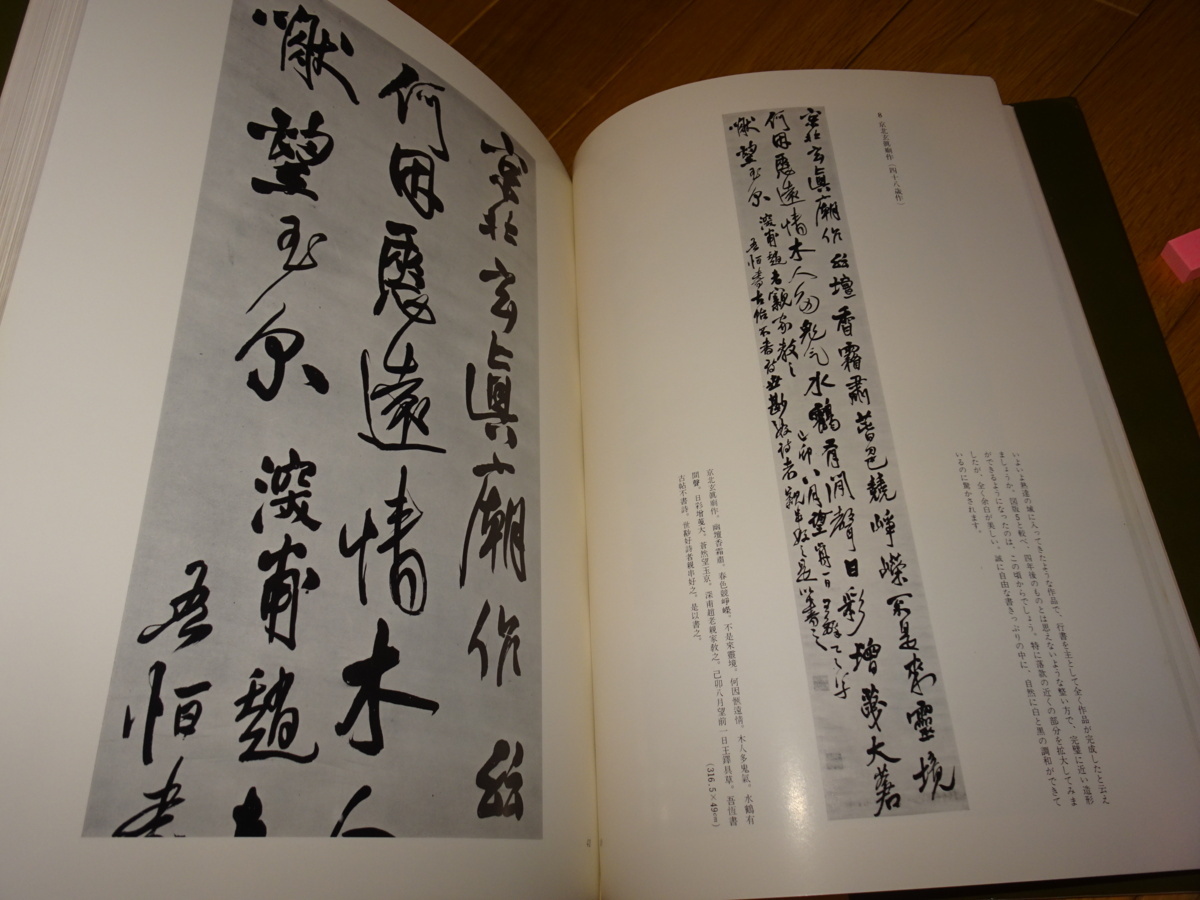 いよいよ熟達の域に入ってきたような作品で、行書を主として全く作品が完成したと云え
ましょうか。図版5と較べ、四年後のものとは思えないような整い方で、完璧に近い造形
ができるようになったのは、この頃からでしょう。特に落款の近くの部分を拡大してみま
したが、全く余白が美しい。誠に自由な書きっぷりの中に、自然に白と黒の調和ができて
いるのに驚かされます。
8 京北玄眞廟作（四十八歳作）
京北玄眞廟作 幽壇香霜肅 春色競崢嶸 不是來靈境
何因愜遠情 木人多鬼氣 水鶴有澗聲 日影增蒼
然望玉京 深甫趙老親家教之 己卯八月望前一日王鐸具草
吾恒書古帖不書詩 世
京北玄眞廟作。幽壇香霜肅。春色競崢嶸。不是來靈境。何因愜遠情。木人多鬼氣。水鶴有
間聲。日彩增蔓大。蒼然望玉京。深甫趙老親家教之。己卯八月望前一日王鐸具草。吾恆書
古帖不書詩。世尠好詩者親串好之。是以書之。
（316.5×49㎝）
京北玄眞廟作 幽
何因愜遠情木人
然望玉京 深甫趙老
吾恒書